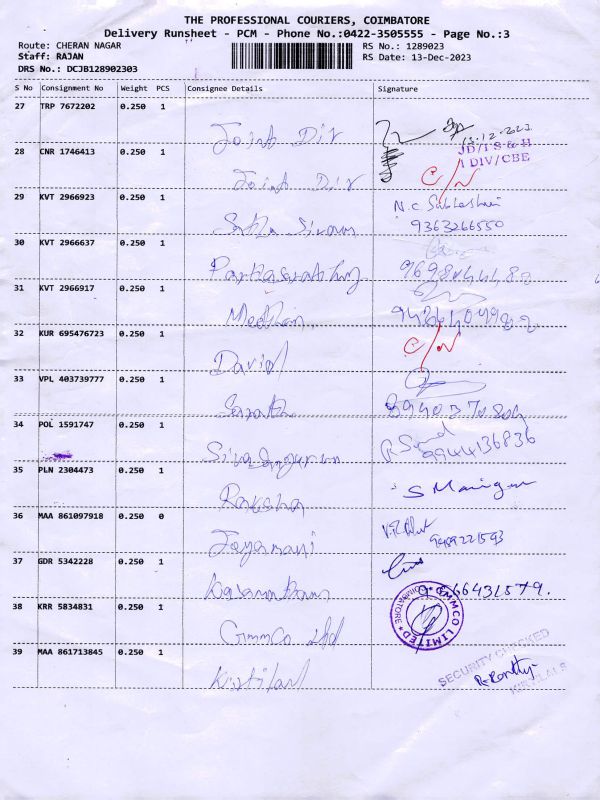 THE PROFESSIONAL COURIERS, COIMBATORE
Delivery Runsheet - PCM - Phone No.:0422-3505555 - Page No.:3
Route: CHERAN NAGAR
RS No.: 1289023
Staff: RAJAN
RS Date: 13-Dec-2023
DRS No.: DCJB128902303
S No Consignment No Weight PCS Consignee Details Signature
27 TRP 7672202 0.250 1
Joint Dir
13.12.2023
JD/I S & H
I DIV/CBE
28 CNR 1746413 0.250 1
Joint Dir
C/N
29 KVT 2966923 0.250 1
N.C
9363266550
30 KVT 2966637 0.250 1
31 KVT 2966917 0.250 1
32 KUR 695476723 0.250 1
David
C/N
33 VPL 403739777 0.250 1
34 POL 1591747 0.250 1
9944136836
35 PLN 2304473 0.250 1
Raksha
36 MAA 861097918 0.250 0
Jayamani
9489221593
37 GDR 5342228 0.250 1
38 KRR 5834831 0.250 1
Gmmco Ltd
GMMCO LIMITED
COIMBATORE
39 MAA 861713845 0.250 1
Kirtilal
SECURITY CHECKED
KIRTILALS